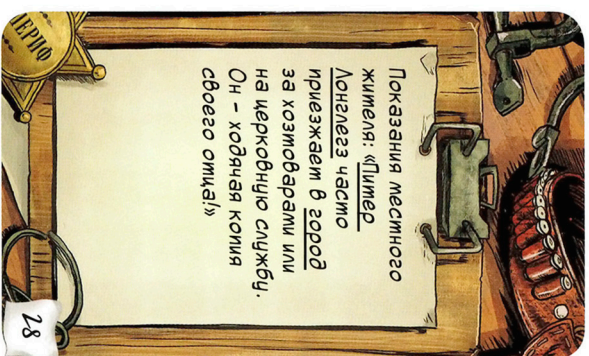 Показания местного
жителя: «Питер
Лонглегз часто
приезжает в город
за хозтоварами или
на церковную службу.
Он – ходячая копия
своего отца!»
ЕРИФ
28